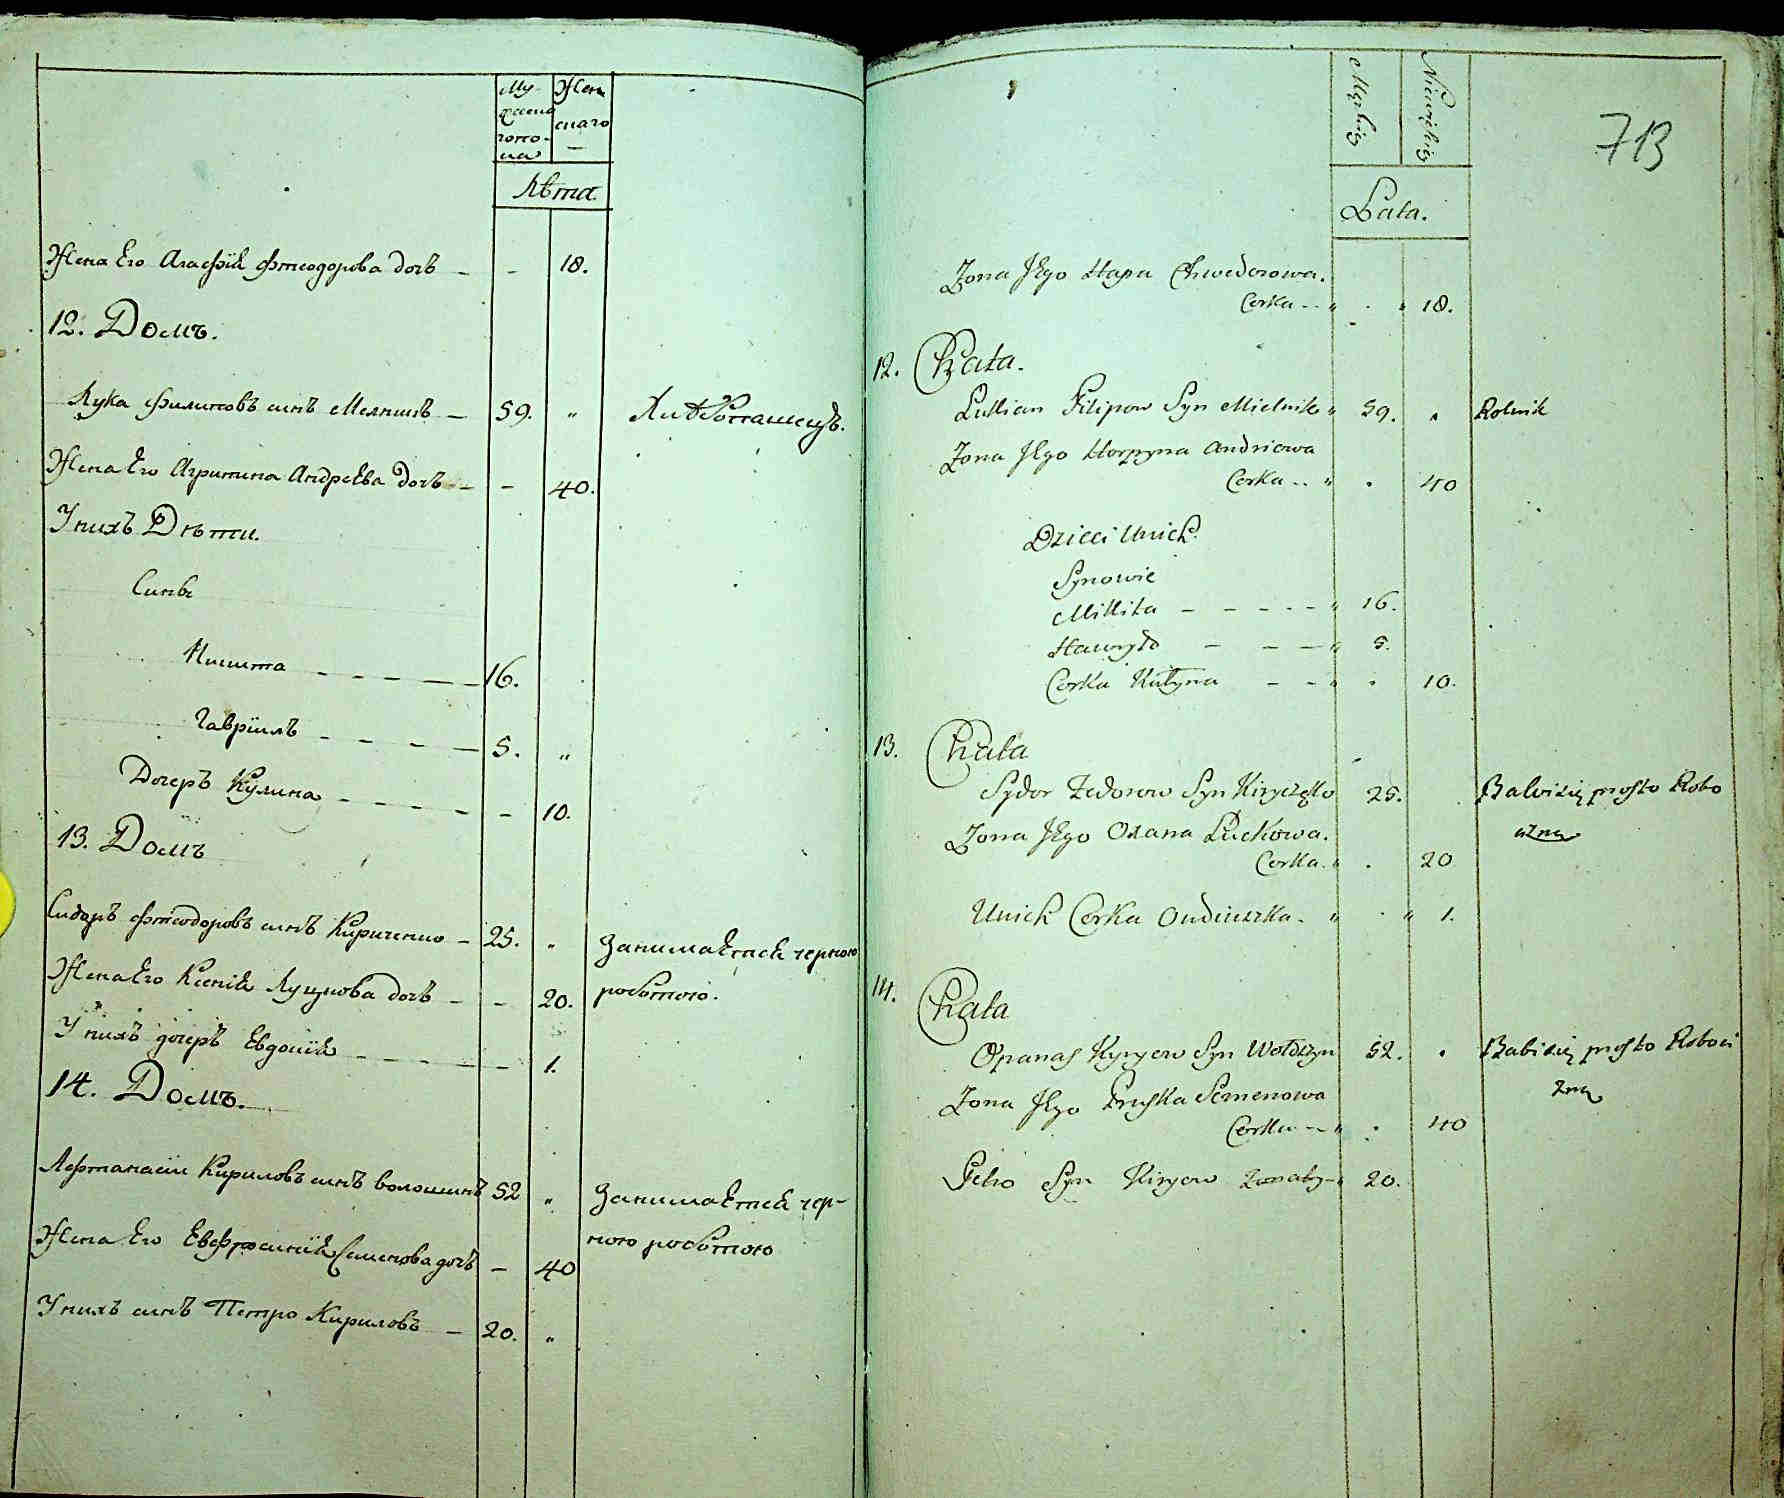 Му-
жеска
гопо-
ла
Жен
скаго
Лѣта.
Жена Его Агафiя Фтеодорова дочъ — - 18.
12. Домъ.
Лука Филиповъ синъ Мелникъ — 59. „ Хлѣбопашецъ.
Жена Его Агрипина Андреѣва дочъ — - 40.
У нихъ Дѣти.
Сини
Никита — 16.
Гаврiилъ — 5. „
Дочеръ Кулина — - 10.
13. Домъ
Сидоръ Фтеодоровъ синъ Кириченко — 25. „ Занимаѣтся черною
роботою.
Жена Его Ксенiя Луцкова дочъ — - 20.
У нихъ дочеръ Евдокiя — - 1.
14. Домъ.
Афтанасiи Кириловъ синъ волошинъ 52 „ Занимаѣтся чер-
ною роботою
Жена Его Евфросинiя Семенова дочъ - 40
У нихъ синъ Петро Кириловъ — 20. „
713
Męzkię
Niewięskię
Lata.
Zona Jego Hapa Chwedorowa.
Corka - - „ . „ 18.
12. Chata.
Lukian Filipow Syn Mielnik „ 59. „ Rolnik
Zona Jego Horpyna Andriowa
Corka - - „ . 40
Dzieci Unich.
Synowie
Mikita — - - - - „ 16.
Hawryło — — — „ 5.
Corka Kulyna — - „ . 10.
13. Chata
Sydor Fedorow Syn Kiryczęko 25. Babi się prosto Robo
czną
Zona Jego Oxana Luckowa.
Corka. „ . 20
Unich Corka Ondiuszka. „ . „ 1.
14. Chata
Opanas Kyryow Syn Wołoszyn 52. . Babi się prosto Roboci
zną
Zona Jego Pruska Semenowa
Corka - - „ . 40
Petro Syn Kiryow Zonaty - „ 20.